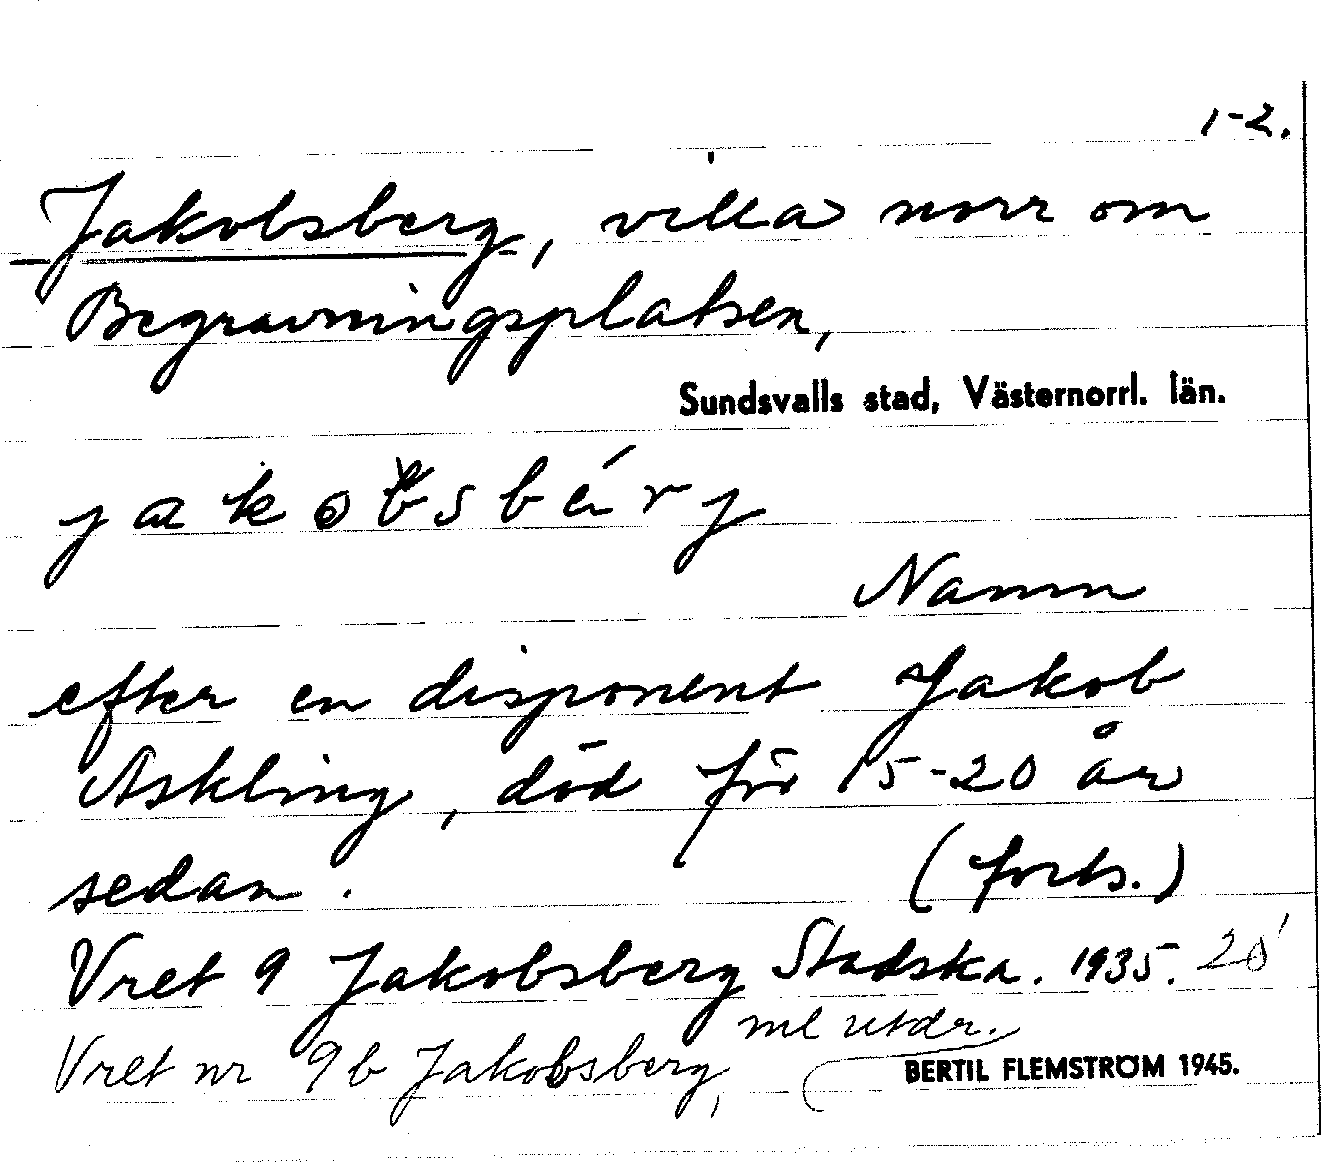 1-2.
Jakobsberg, villa norr om
Begravningsplatsen,
Sundsvalls stad, Västernorrl. län.
jakobsbérj
Namn
efter en disponent Jakob
Askling, död för 15-20 år
sedan. (forts.)
Vret 9 Jakobsberg Stadska. 1935.
ml utdr.
Vret nr 9b Jakobsberg,
BERTIL FLEMSTRÖM 1945.